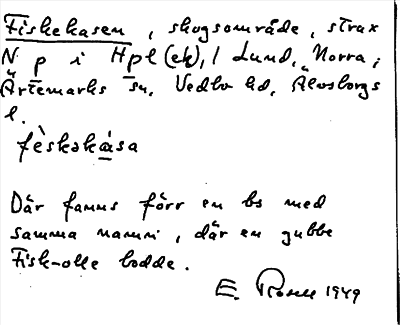 Fiskekasen, skogsområde, strax
N p i Hpl (ek), i Lund, Norra,
Ärtemarks sn, Vedbo hd, Älvsborgs
l.
fèskəkàsa
Där fanns förr en bs med
samma namn, där en gubbe
Fisk-olle bodde.
E. 1949